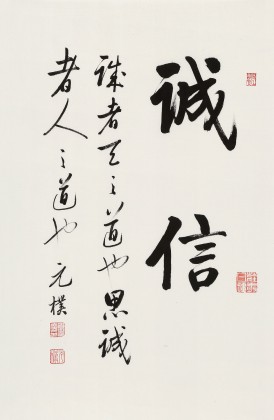 诚信
诚者天之道也思诚
者人之道也 元朴